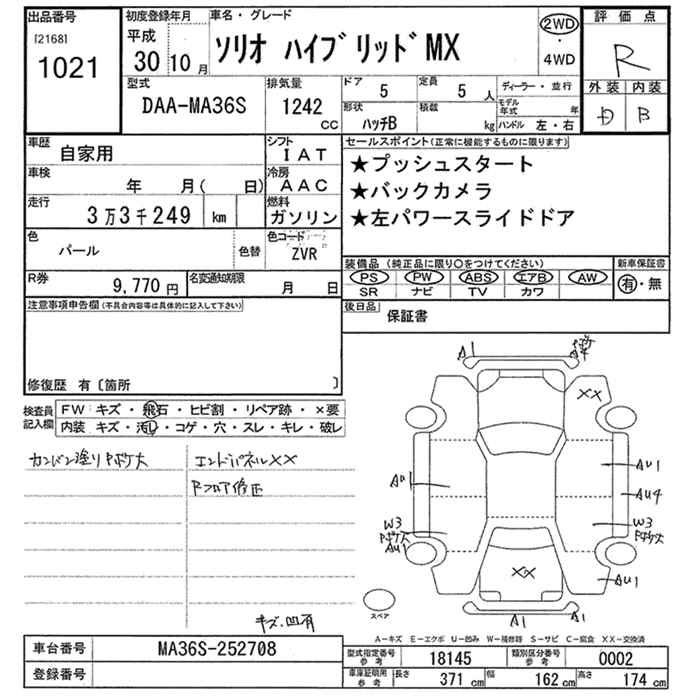 出品番号
[2168]
1021
初度登録年月
平成
30 10 月
車名・グレード
ソリオ ハイブリッドMX
2WD
・
4WD
評価点
R
型式
DAA-MA36S
排気量
1242
CC
ドア
5
定員
5 人
形状
ハッチB
積載
kg
ディーラー・並行
モデル年式 年
ハンドル 左・右
外装 内装
D B
車歴
自家用
シフト
IAT
車検
年 月( 日)
冷房
AAC
走行
3万3千249 km
燃料
ガソリン
色
パール
色替
色コード
ZVR
R券
9,770 円
名変通知期限
月 日
セールスポイント(正常に機能するものに限ります)
★プッシュスタート
★バックカメラ
★左パワースライドドア
装備品(純正品に限り○をつけてください)
新車保証書
PS PW ABS エアB AW
SR ナビ TV カワ
有・無
後日品
保証書
注意事項申告欄(不具合内容等は具体的に記入して下さい)
修復歴 有〔箇所 〕
検査員
記入欄
FW キズ・飛石・ヒビ割・リペア跡・×要
内装 キズ・汚し・コゲ・穴・スレ・キレ・破レ
エンドパネルXX
Rフロア修正
キズ、凹有
A1
XX
AU1
AU1
AU4
W3
AU1
W3
AU1
XX
A1 A1
スペア
A-キズ E-エクボ U-凹み W-補修跡 S-サビ C-腐食 XX-交換済
車台番号
MA36S-252708
登録番号
型式指定番号
参考
18145
類別区分番号
参考
0002
車庫証明用
参考
長さ 371 cm
幅 162 cm
高さ 174 cm